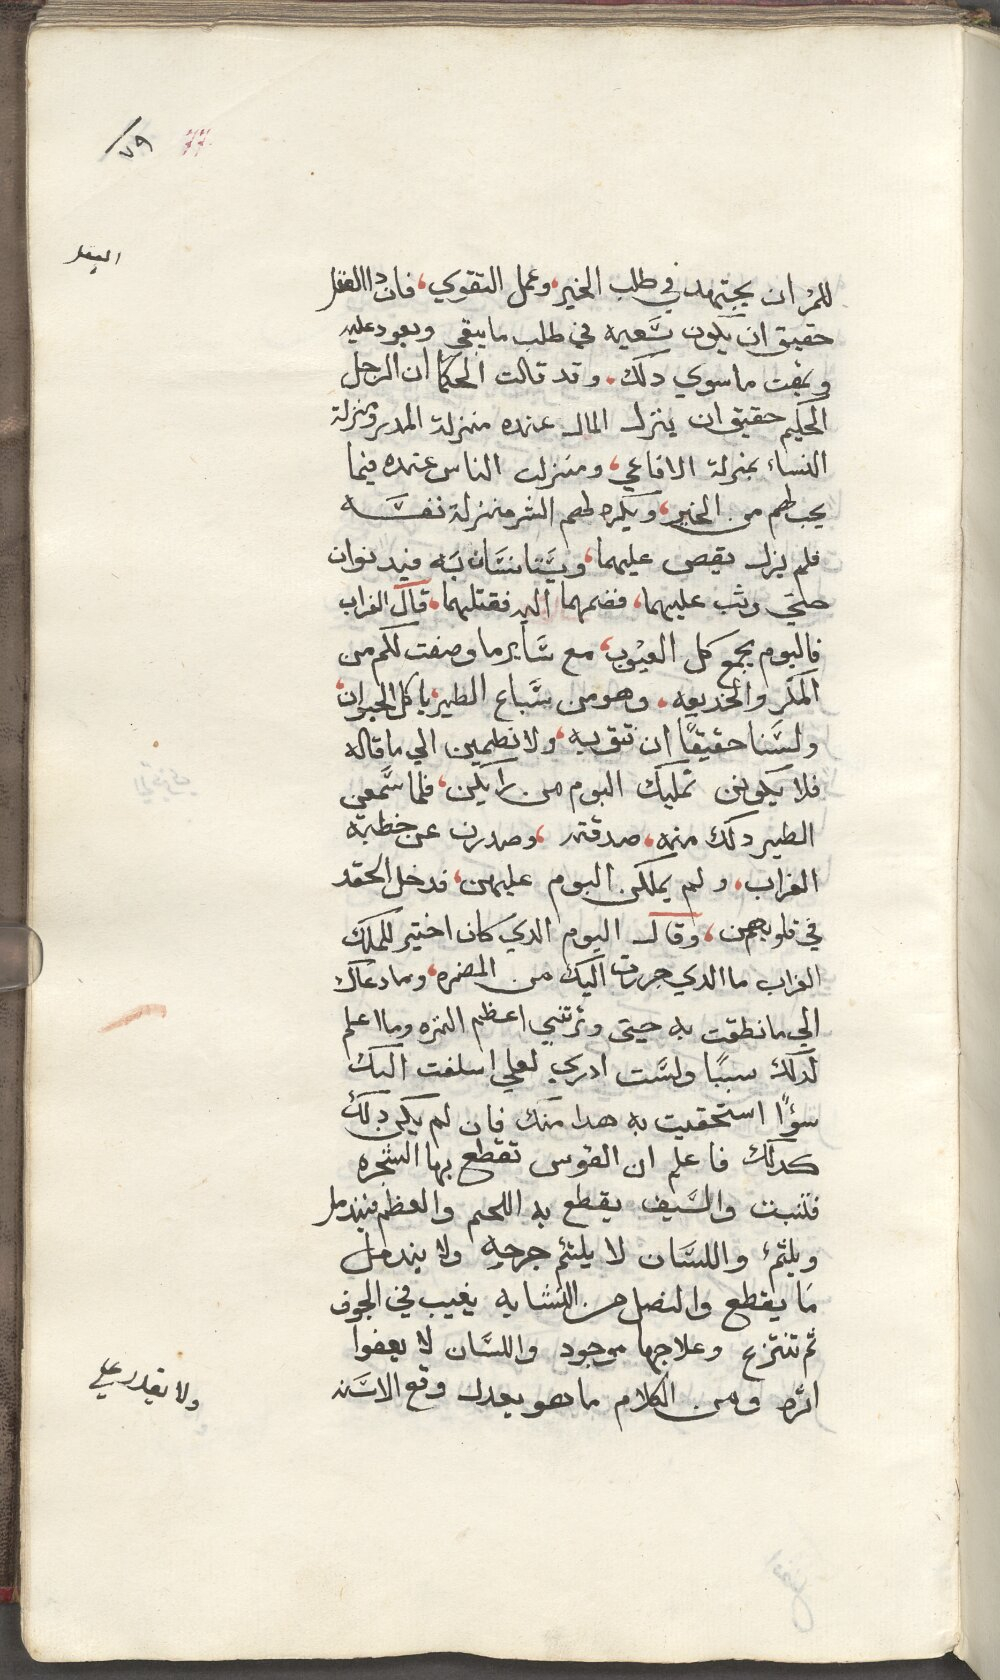 ٧٩
77
البقل
للمرء ان يجتهد في طلب الخير، وعمل التقوي، فان دا العقل
حقيق ان يكون سعيه في طلب ما يبقي ويعود عليه
ويمقت ما سوي دلك. وقد قالت الحكما ان الرجل
الحكيم حقيق ان ينزل المال عنده منزلة المدر ومنزلة
النساء بمنزلة الافاعي، ومنزلت الناس عنده فيما
يحب لهم من الخير، ويكره لهم الشر منزلة نفسه
فلم يزل يقص عليهما، ويستانسان به فيدنوان
حتي وثب عليهما، فضمهما اليه فقتلهما. قال الغراب
فالبوم يجمع كل العيوب، مع ساير ما وصفت لكم من
المكر والخديعه. وهو من سباع الطير، ياكل الحيوان،
ولسنا حقيقًا ان نتق به، ولا نطمين الي ما قاله
فلا يكونن تمليك البوم من رايكن، فلما سمعن
الطير دلك منه، صدقته، وصدرن عن خطبة
الغراب. ولم يملكن البوم عليهن، فدخل الحقد
في قلوبهمن، وقال اليوم الدي كان اختير للملك
الغراب ما الدي جررت اليك من المضره، وما دعاك
الي ما نطقت به حيتي وترتني اعظم التره وما اعلم
لدلك سببًا ولست ادري لعلي اسلفت اليك
سوءًا استحقيت به هدا منك فان لم يكن دلك
كدلك فاعلم ان القوس تقطع بها الشجره
فتنبت والسيف يقطع به اللحم والعظم فيندمل
ويلتمئ واللسان لا يلتئم جرحه ولا يندمل
ما يقطع والنصل من النشابه يغيب في الجوف
ثم تنتزع وعلاجها موجود واللسان لا يعفوا
اثره ومن الكلام ما هو يعدل وقع الاسنه
ولا يقدر علي